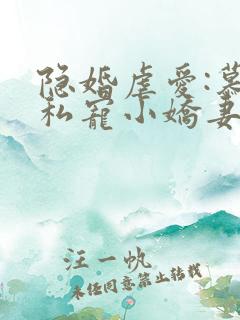 隐婚虐爱:慕
私宠小娇妻
汪一帆
未经同意禁止转载